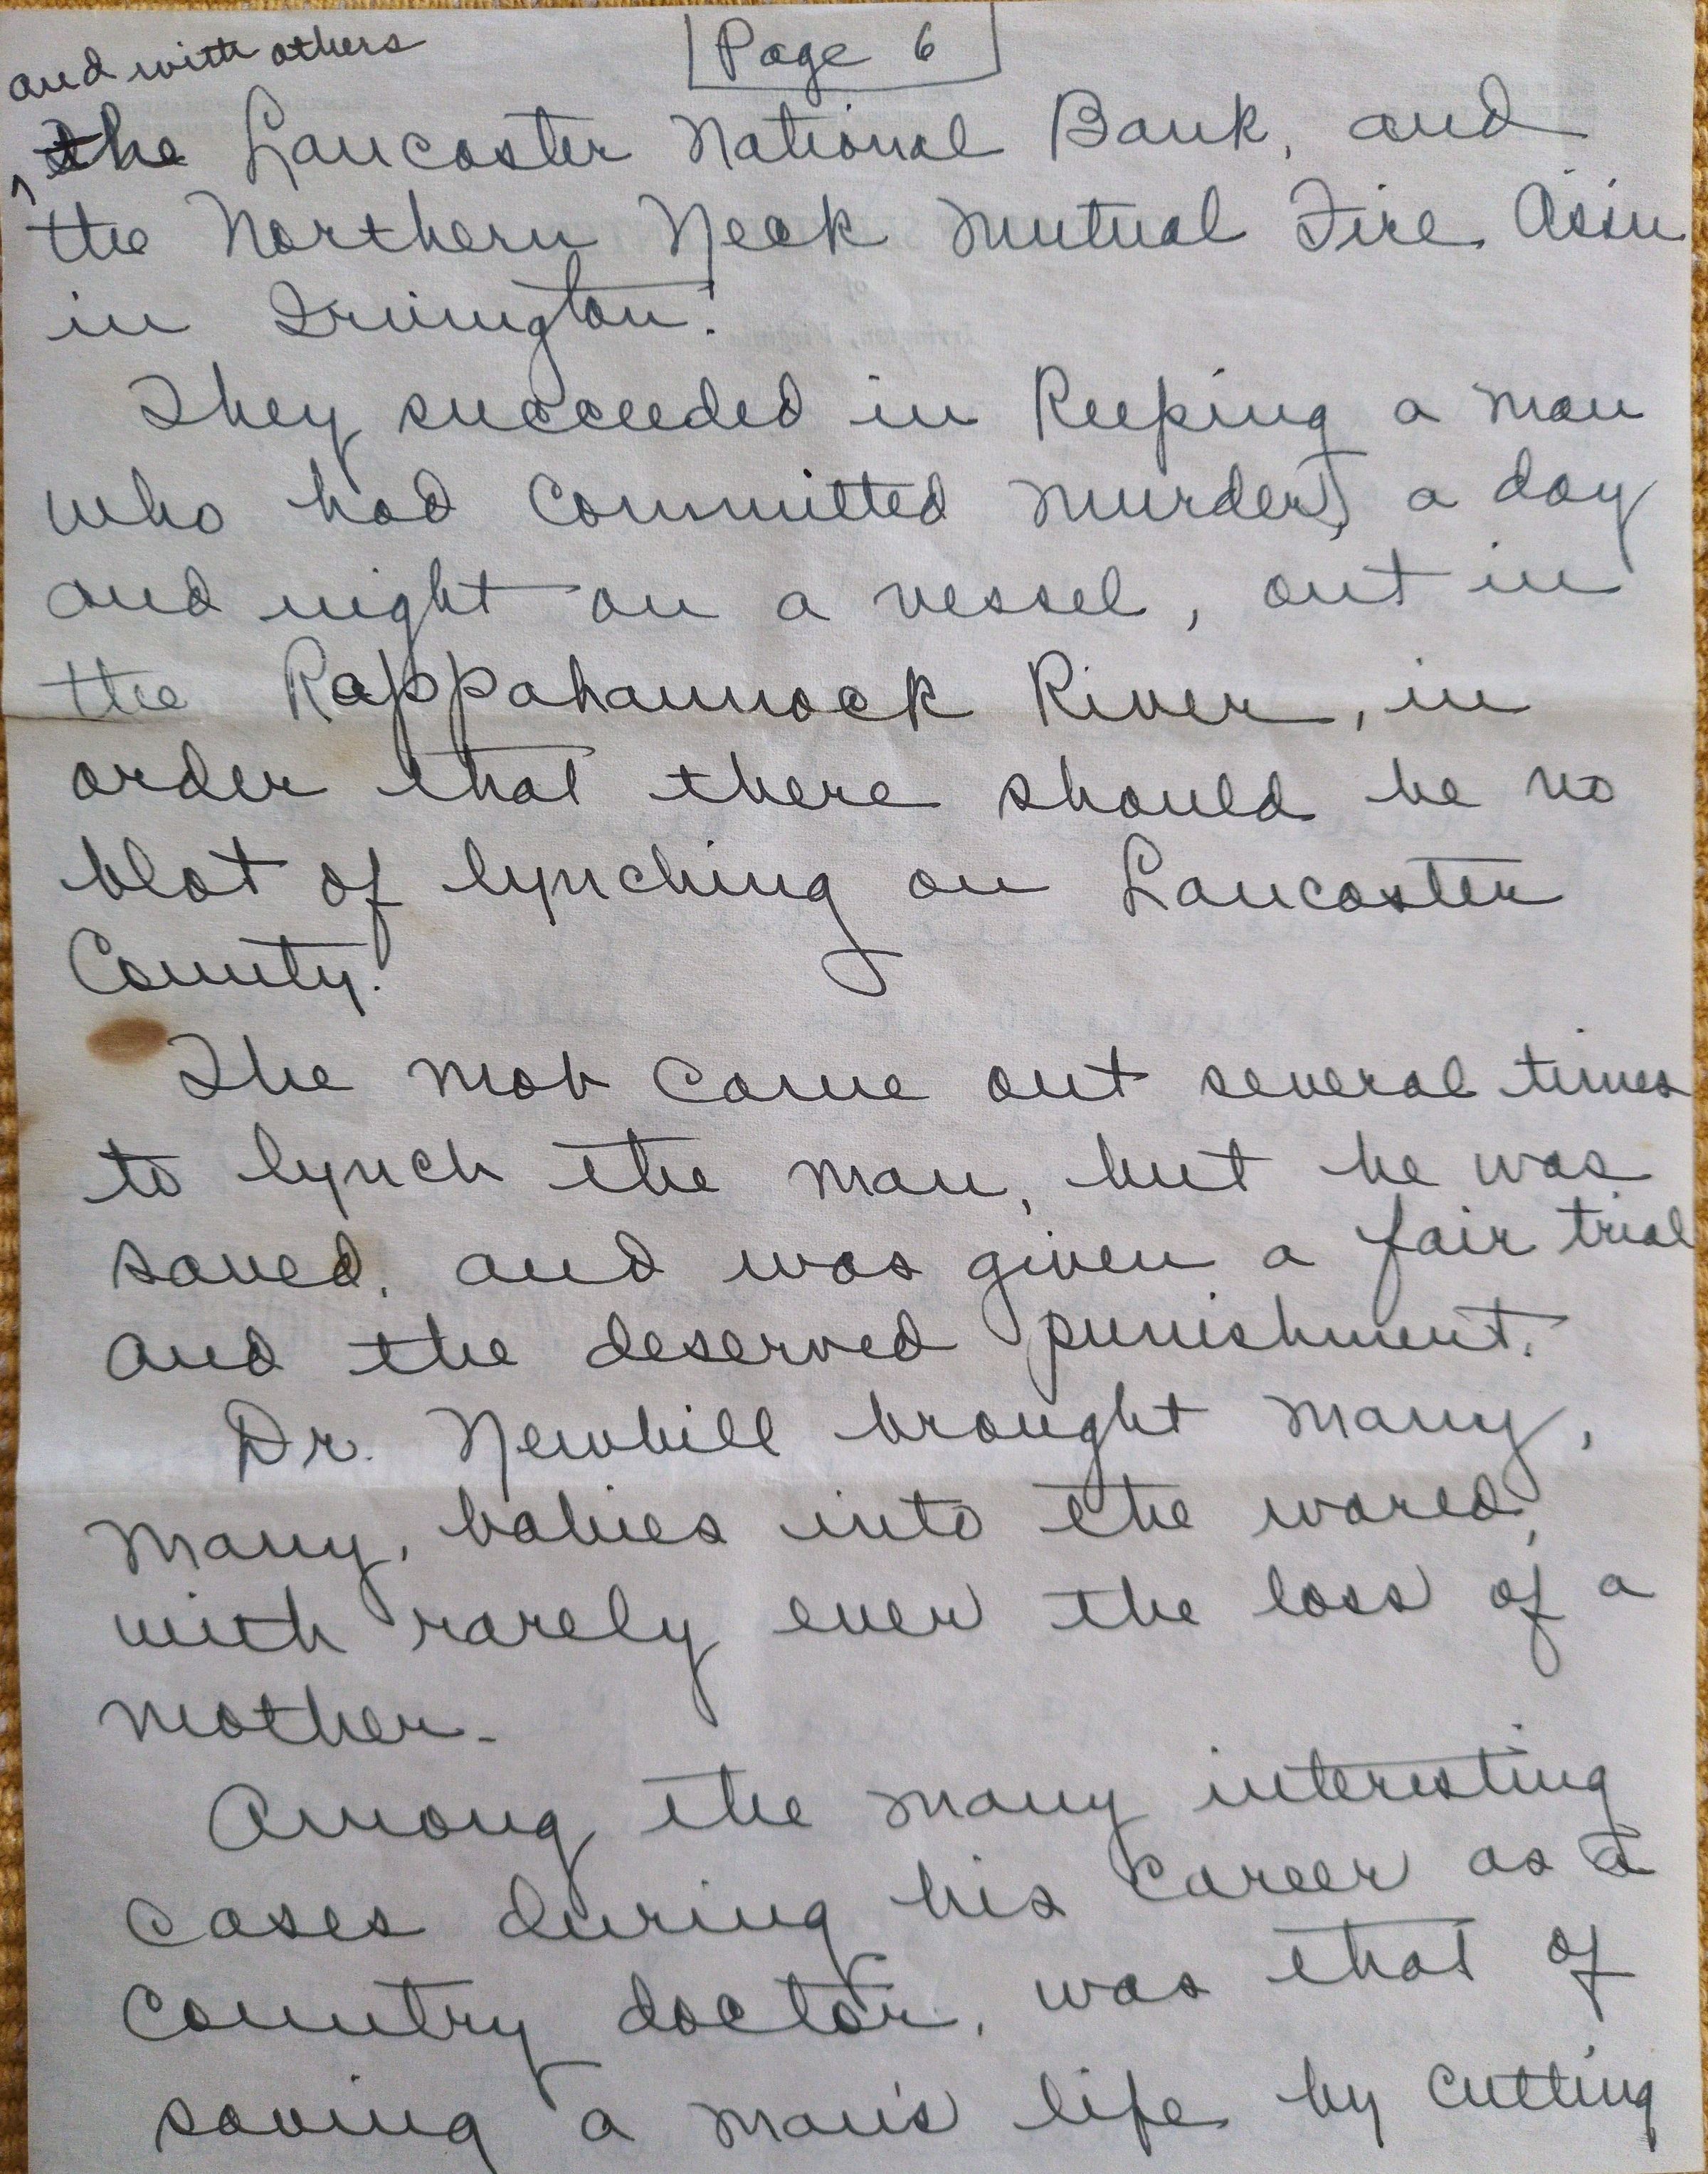 Page 6
and with others
the Lancaster National Bank, and
the Northern Neck Mutual Fire Ass'n
in Irvington.
They succeeded in keeping a man
who had committed murder, a day
and night on a vessel, out in
the Rappahannock River, in
order that there should be no
blot of lynching on Lancaster
County.
The mob came out several times
to lynch the man, but he was
saved, and was given a fair trial
and the deserved punishment.
Dr. Newbill brought many,
many, babies into the world,
with rarely ever the loss of a
mother.
Among the many interesting
cases during his career as a
country doctor, was that of
saving a man's life by cutting